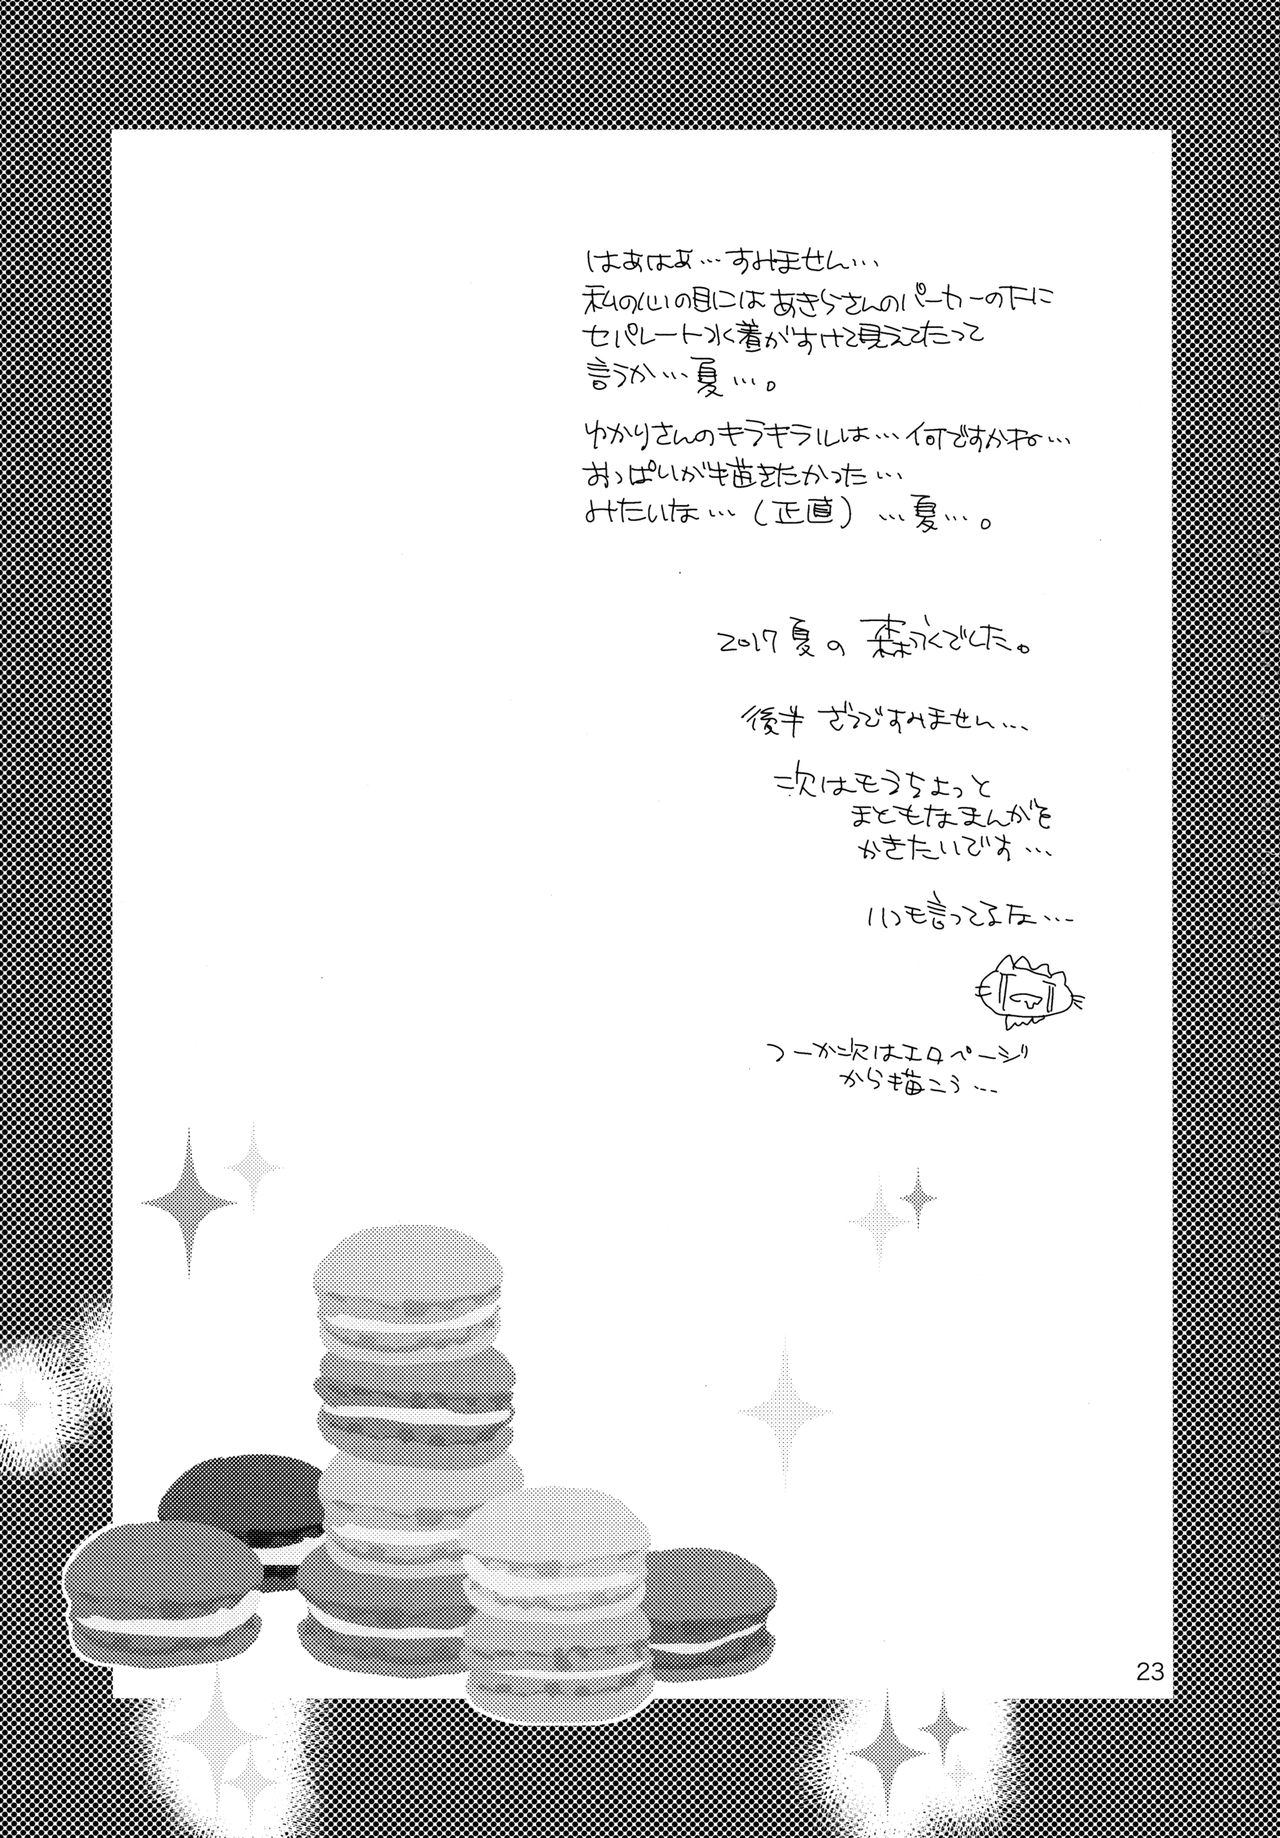 はあはぁ…すみません…
私の心の目にはあきらさんのパーカーの下に
セパレート水着がすけて見えてたって
言うか…夏…。
ゆかりさんのキラキラルは…何ですかね…
おっぱいが描きたかった…
みたいな…(正直)…夏…。
2017夏の でした。
後半ざつですみません…
次はもうちょっと
まともなまんがを
かきたいです…
いつも言ってるな…
つーか次はエロページ
から描こう…
23